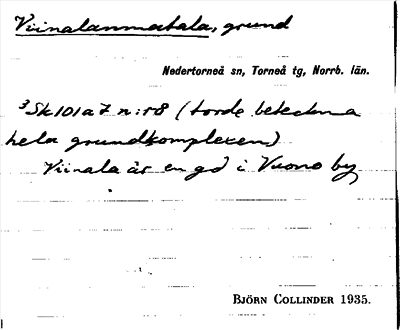 Viinalanmatala, grund
Nedertorneå sn, Torneå tg, Norrb. län.
3Sk101a7 n:r8 (torde beteckna
hela grundkomplexen)
Viinala är en gd i Vuono by
BJÖRN COLLINDER 1935.